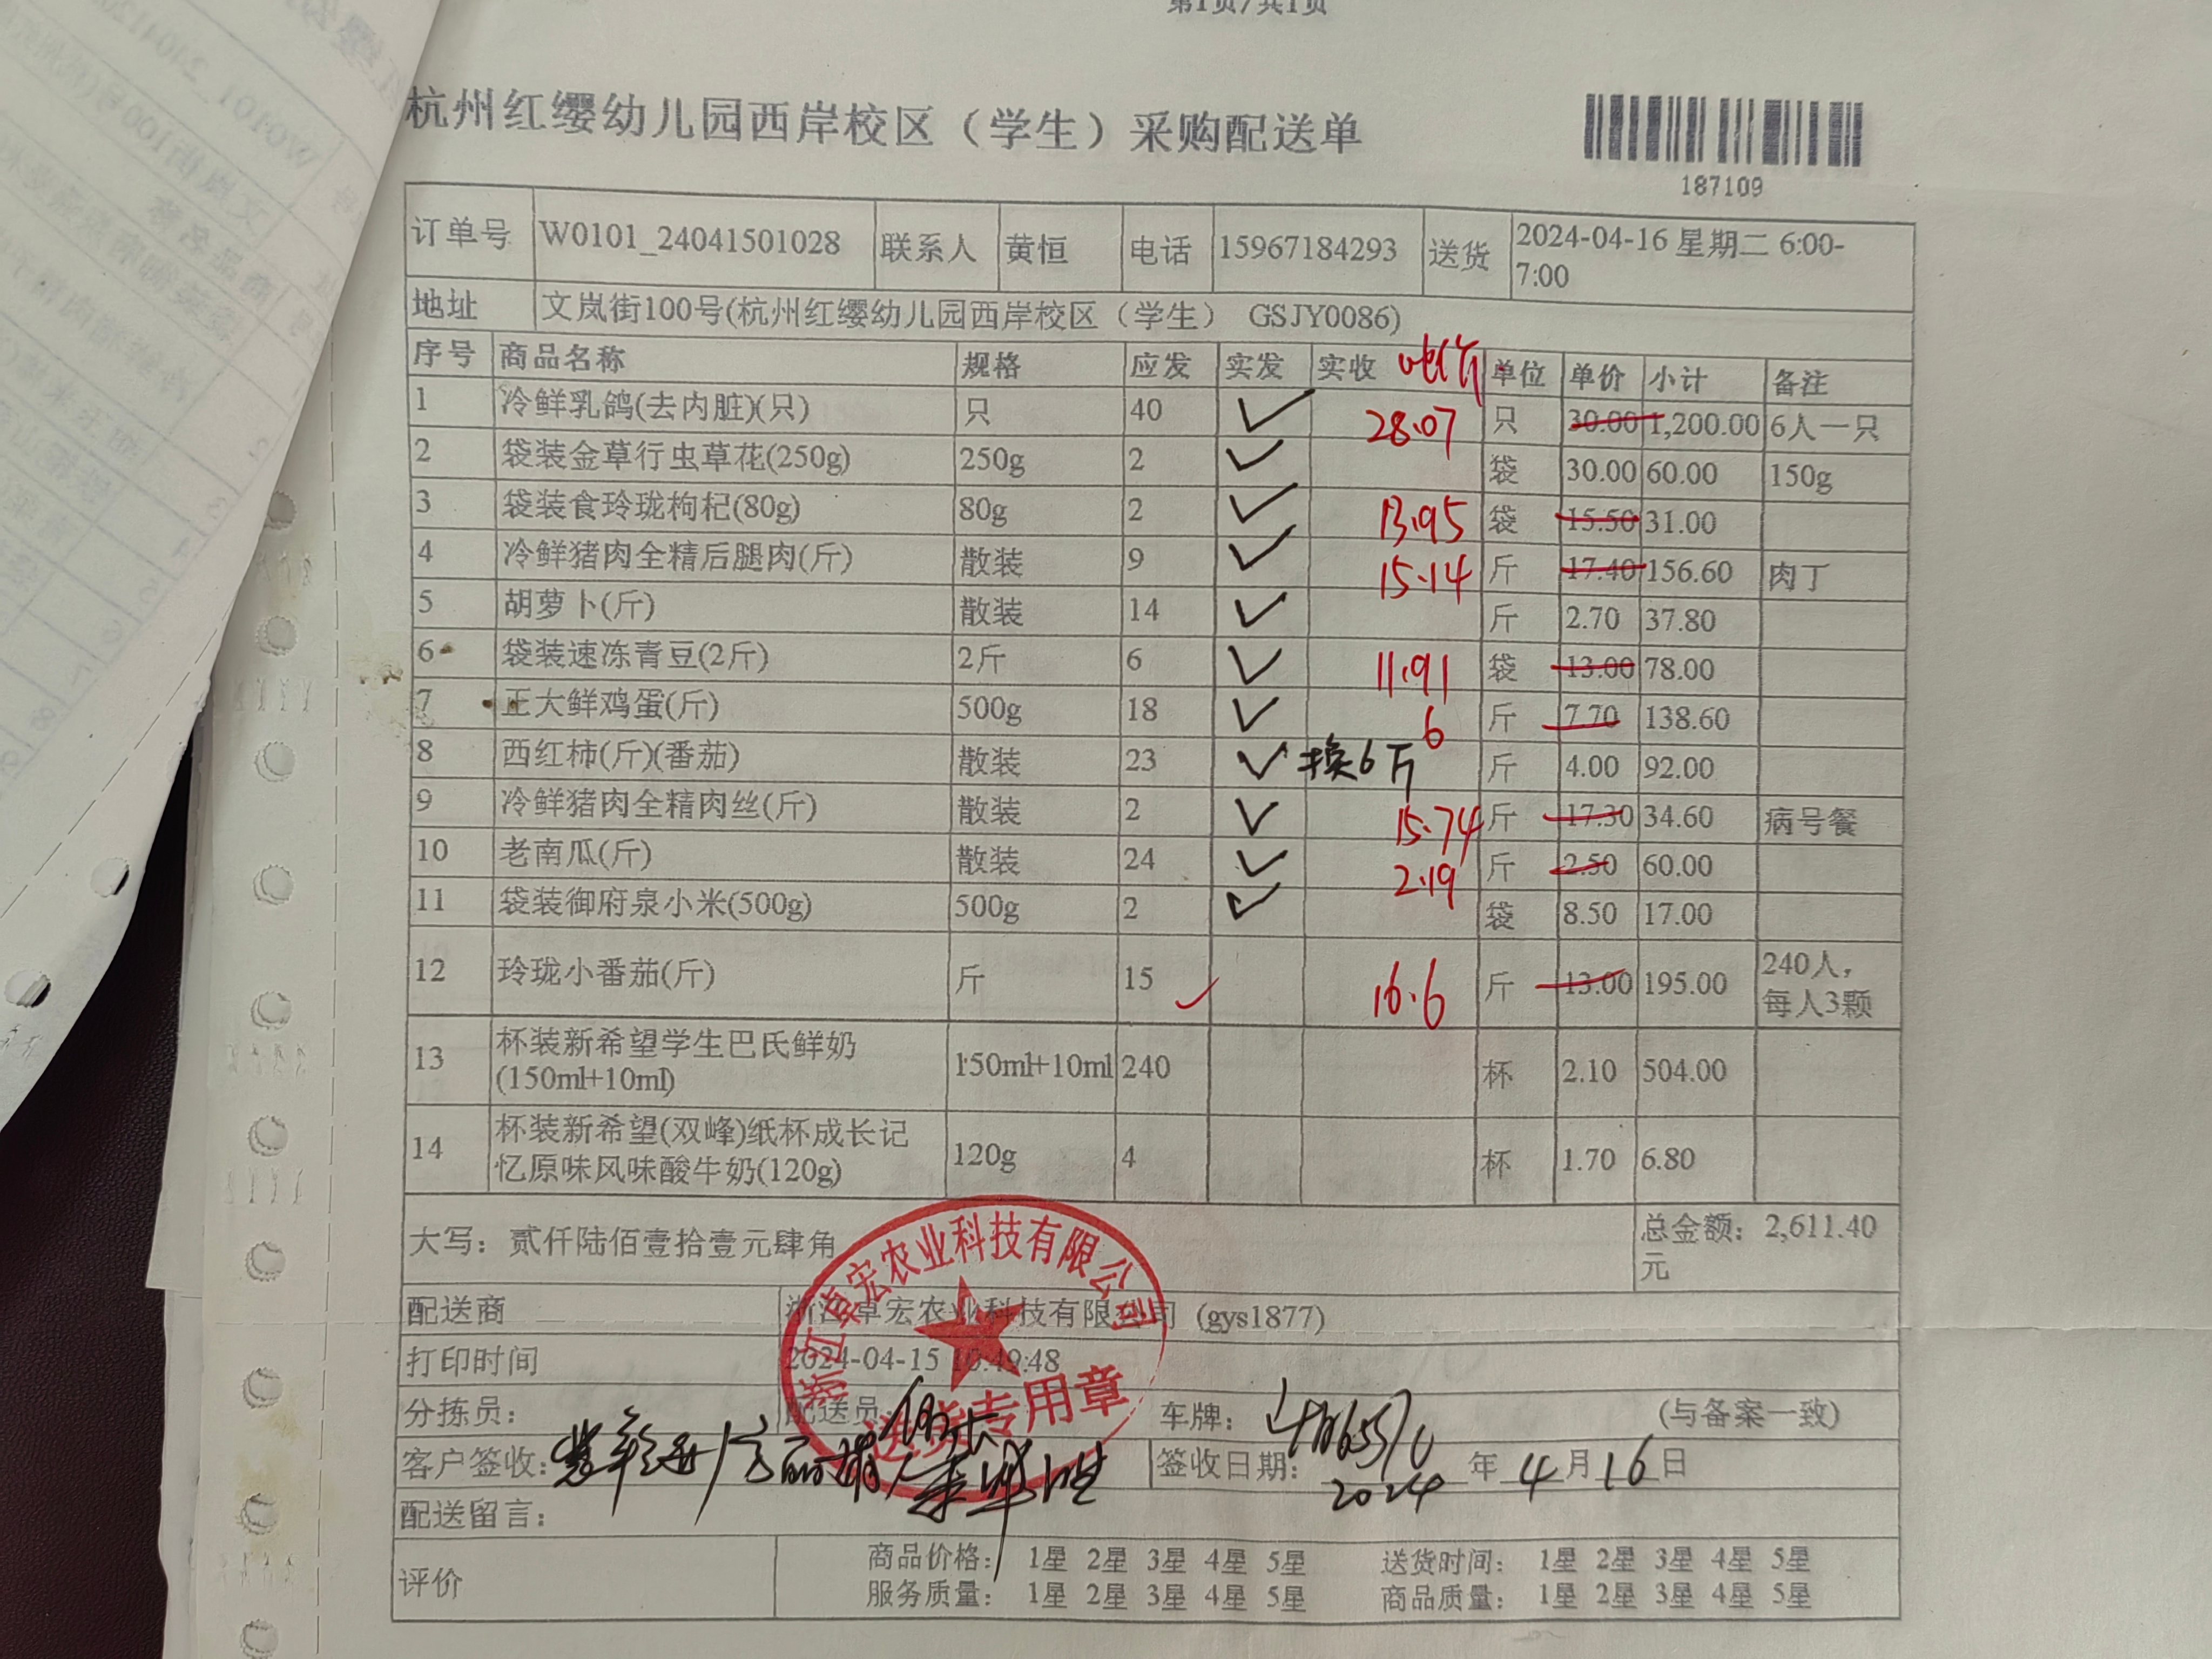 第1页/共1页
杭州红缨幼儿园西岸校区（学生）采购配送单
187109
订单号 W0101_24041501028 联系人 黄恒 电话 15967184293 送货 2024-04-16 星期二 6:00-
7:00
地址 文岚街100号(杭州红缨幼儿园西岸校区（学生） GSJY0086)
序号 商品名称 规格 应发 实发 实收 单位 单价 小计 备注
1 冷鲜乳鸽(去内脏)(只) 只 40 ✓ 28.07 只 30.00 1,200.00 6人一只
2 袋装金草行虫草花(250g) 250g 2 ✓ 袋 30.00 60.00 150g
3 袋装食玲珑枸杞(80g) 80g 2 ✓ 13.95 袋 15.50 31.00
4 冷鲜猪肉全精后腿肉(斤) 散装 9 ✓ 15.14 斤 17.40 156.60 肉丁
5 胡萝卜(斤) 散装 14 ✓ 斤 2.70 37.80
6 袋装速冻青豆(2斤) 2斤 6 ✓ 11.91 袋 13.00 78.00
7 正大鲜鸡蛋(斤) 500g 18 ✓ 6 斤 7.70 138.60
8 西红柿(斤)(番茄) 散装 23 ✓ 换6斤 斤 4.00 92.00
9 冷鲜猪肉全精肉丝(斤) 散装 2 ✓ 15.74 斤 17.30 34.60 病号餐
10 老南瓜(斤) 散装 24 ✓ 2.19 斤 2.50 60.00
11 袋装御府泉小米(500g) 500g 2 ✓ 袋 8.50 17.00
12 玲珑小番茄(斤) 斤 15 ✓ 16.6 斤 13.00 195.00 240人，
每人3颗
13 杯装新希望学生巴氏鲜奶
(150ml+10ml) 150ml+10ml 240 杯 2.10 504.00
14 杯装新希望(双峰)纸杯成长记
忆原味风味酸牛奶(120g) 120g 4 杯 1.70 6.80
大写：贰仟陆佰壹拾壹元肆角 总金额：2,611.40
元
配送商 浙江卓宏农业科技有限公司 (gys1877)
打印时间 2024-04-15 16:49:48
浙江卓宏农业科技有限公司
送货专用章
分拣员： 配送员： 车牌： (与备案一致)
客户签收： 签收日期： 2024 年 4 月 16 日
配送留言：
评价 商品价格： 1星 2星 3星 4星 5星 送货时间： 1星 2星 3星 4星 5星
服务质量： 1星 2星 3星 4星 5星 商品质量： 1星 2星 3星 4星 5星